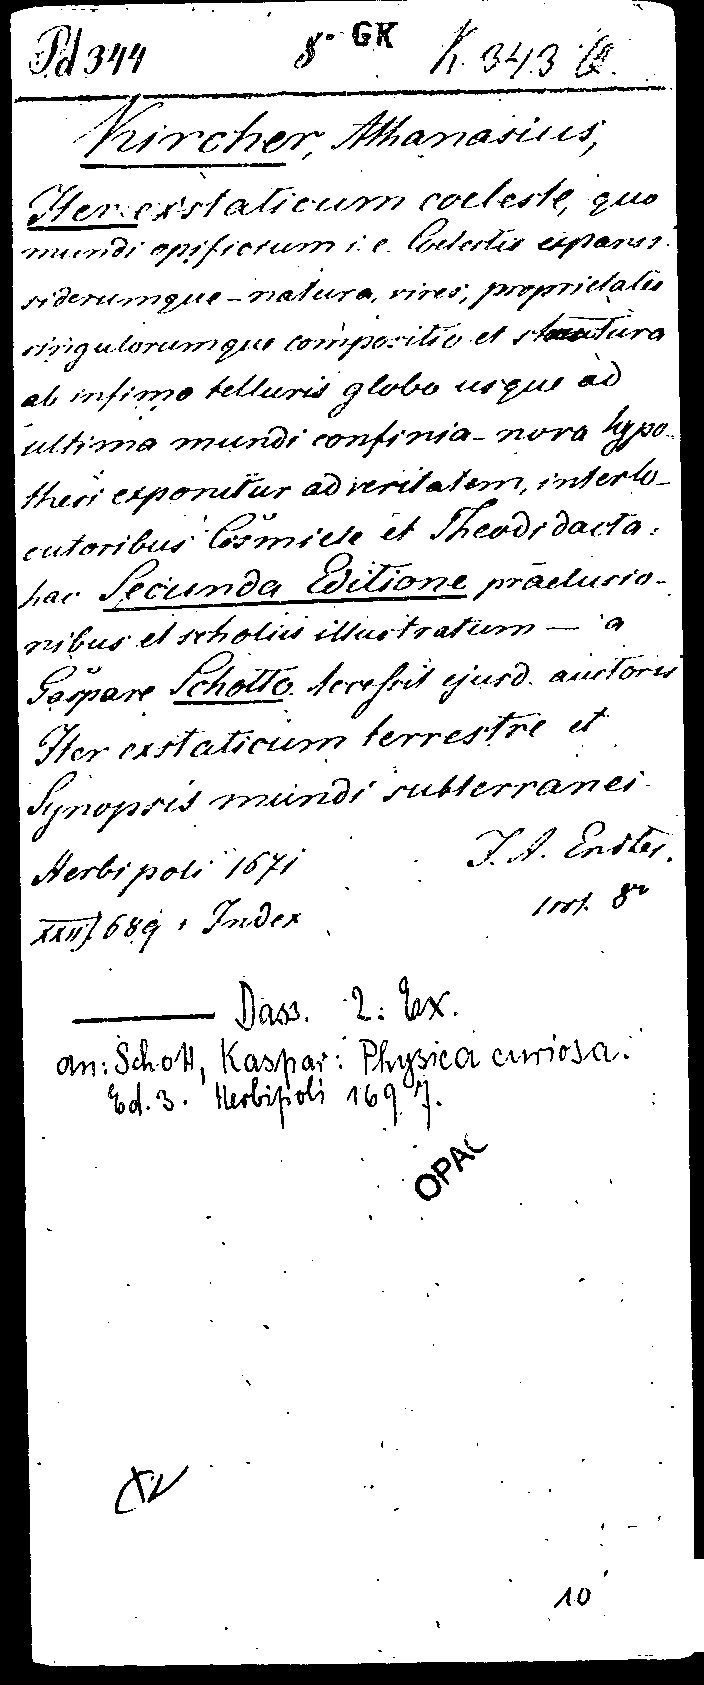 Pd 344 8° GK K. 343 
Kircher, Athanasius,
Iter exstaticum coeleste, quo
mundi opificium i. e. Coelestis expansi
siderumque - natura, vires, proprietates
singulorumque compositio et structura
ab infimo telluris globo usque ad
ultima mundi confinia - nova hypo-
thesi exponitur ad veritatem, interlo-
cutoribus Cosmiele et Theodidacto:
hac Secunda Editione praelusio-
nibus et scholiis illustratum — a
Gaspare Schotto. Accessit ejusd. auctoris
Iter exstaticum terrestre et
Synopsis mundi subterranei.
Herbipoli 1671 J. A. Endter.
XXII, 689 + Index 8vo
Dass. 2. Ex.
an: Schott, Kaspar: Physica curiosa.
Ed. 3. Herbipoli 1697.
OPAC
10